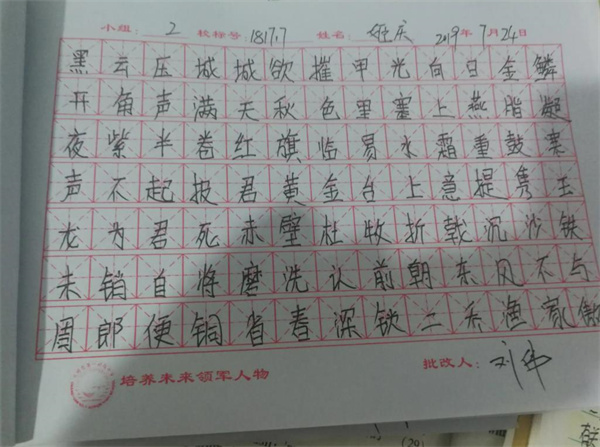 小组: 2 校标号 18177 姓名: 2019年7月24日
黑云压城城欲摧甲光向日金鳞
开角声满天秋色里塞上燕脂凝
夜紫半卷红旗临易水霜重鼓寒
声不起报君黄金台上意提隽王
龙为君死赤壁杜牧折戟沉沙铁
未销自将磨洗认前朝东风不与
周郎便铜省春深锁二乔渔家傲
培养未来领军人物 批改人: 刘伟